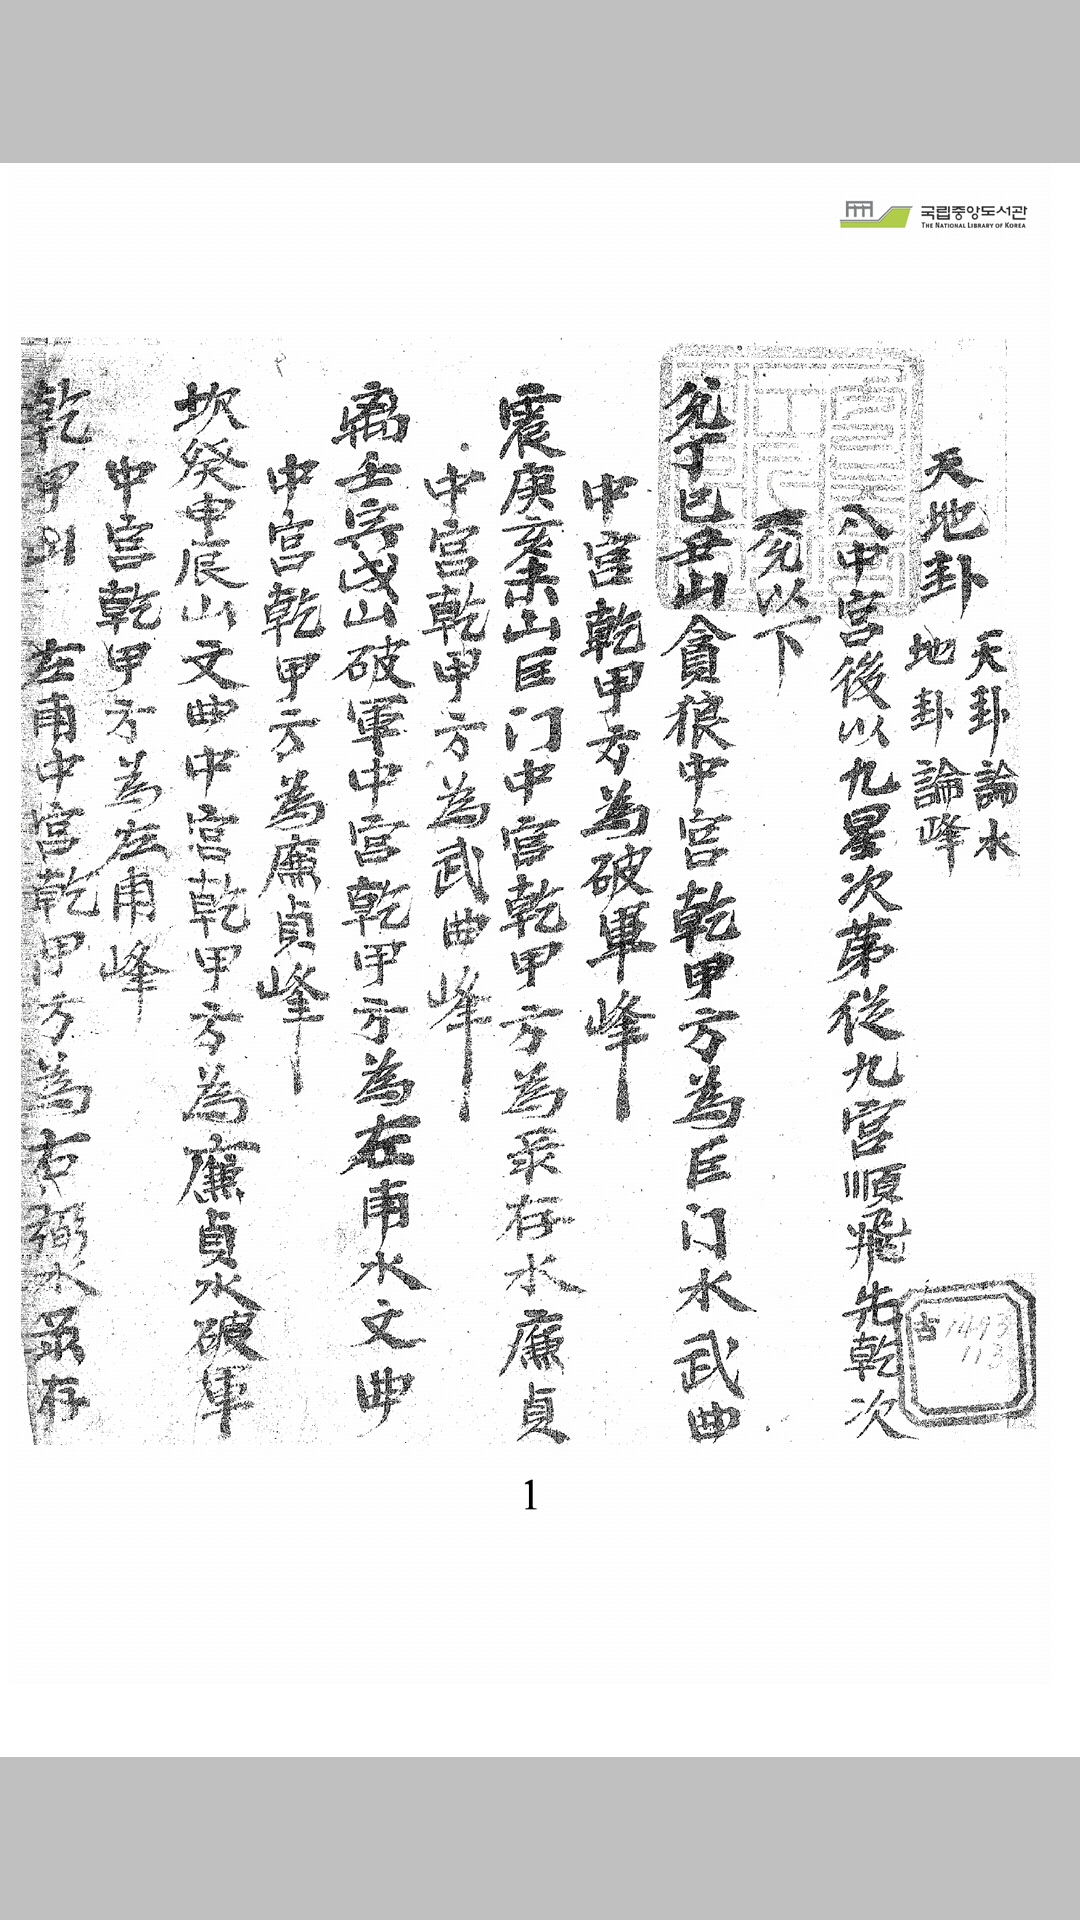 국립중앙도서관
THE NATIONAL LIBRARY OF KOREA
天地卦
天卦論水
地卦論峰
入中宮後以九星次第從九宮順飛先乾次
兌以下
兌丁巳丑山貪狼中宮乾甲方為巨门水武曲
中宮乾甲方為破軍峰
震庚亥未山巨门中宮乾甲方為彔存水廉貞
中宮乾甲方為武曲峰
离壬寅戌山破軍中宮乾甲方為左甫水文曲
中宮乾甲方為廉貞峰
坎癸申辰山文曲中宮乾甲方為廉貞水破軍
中宮乾甲方為左甫峰
乾甲山左甫中宮乾甲方為右弼水彔存
古1493
113
1